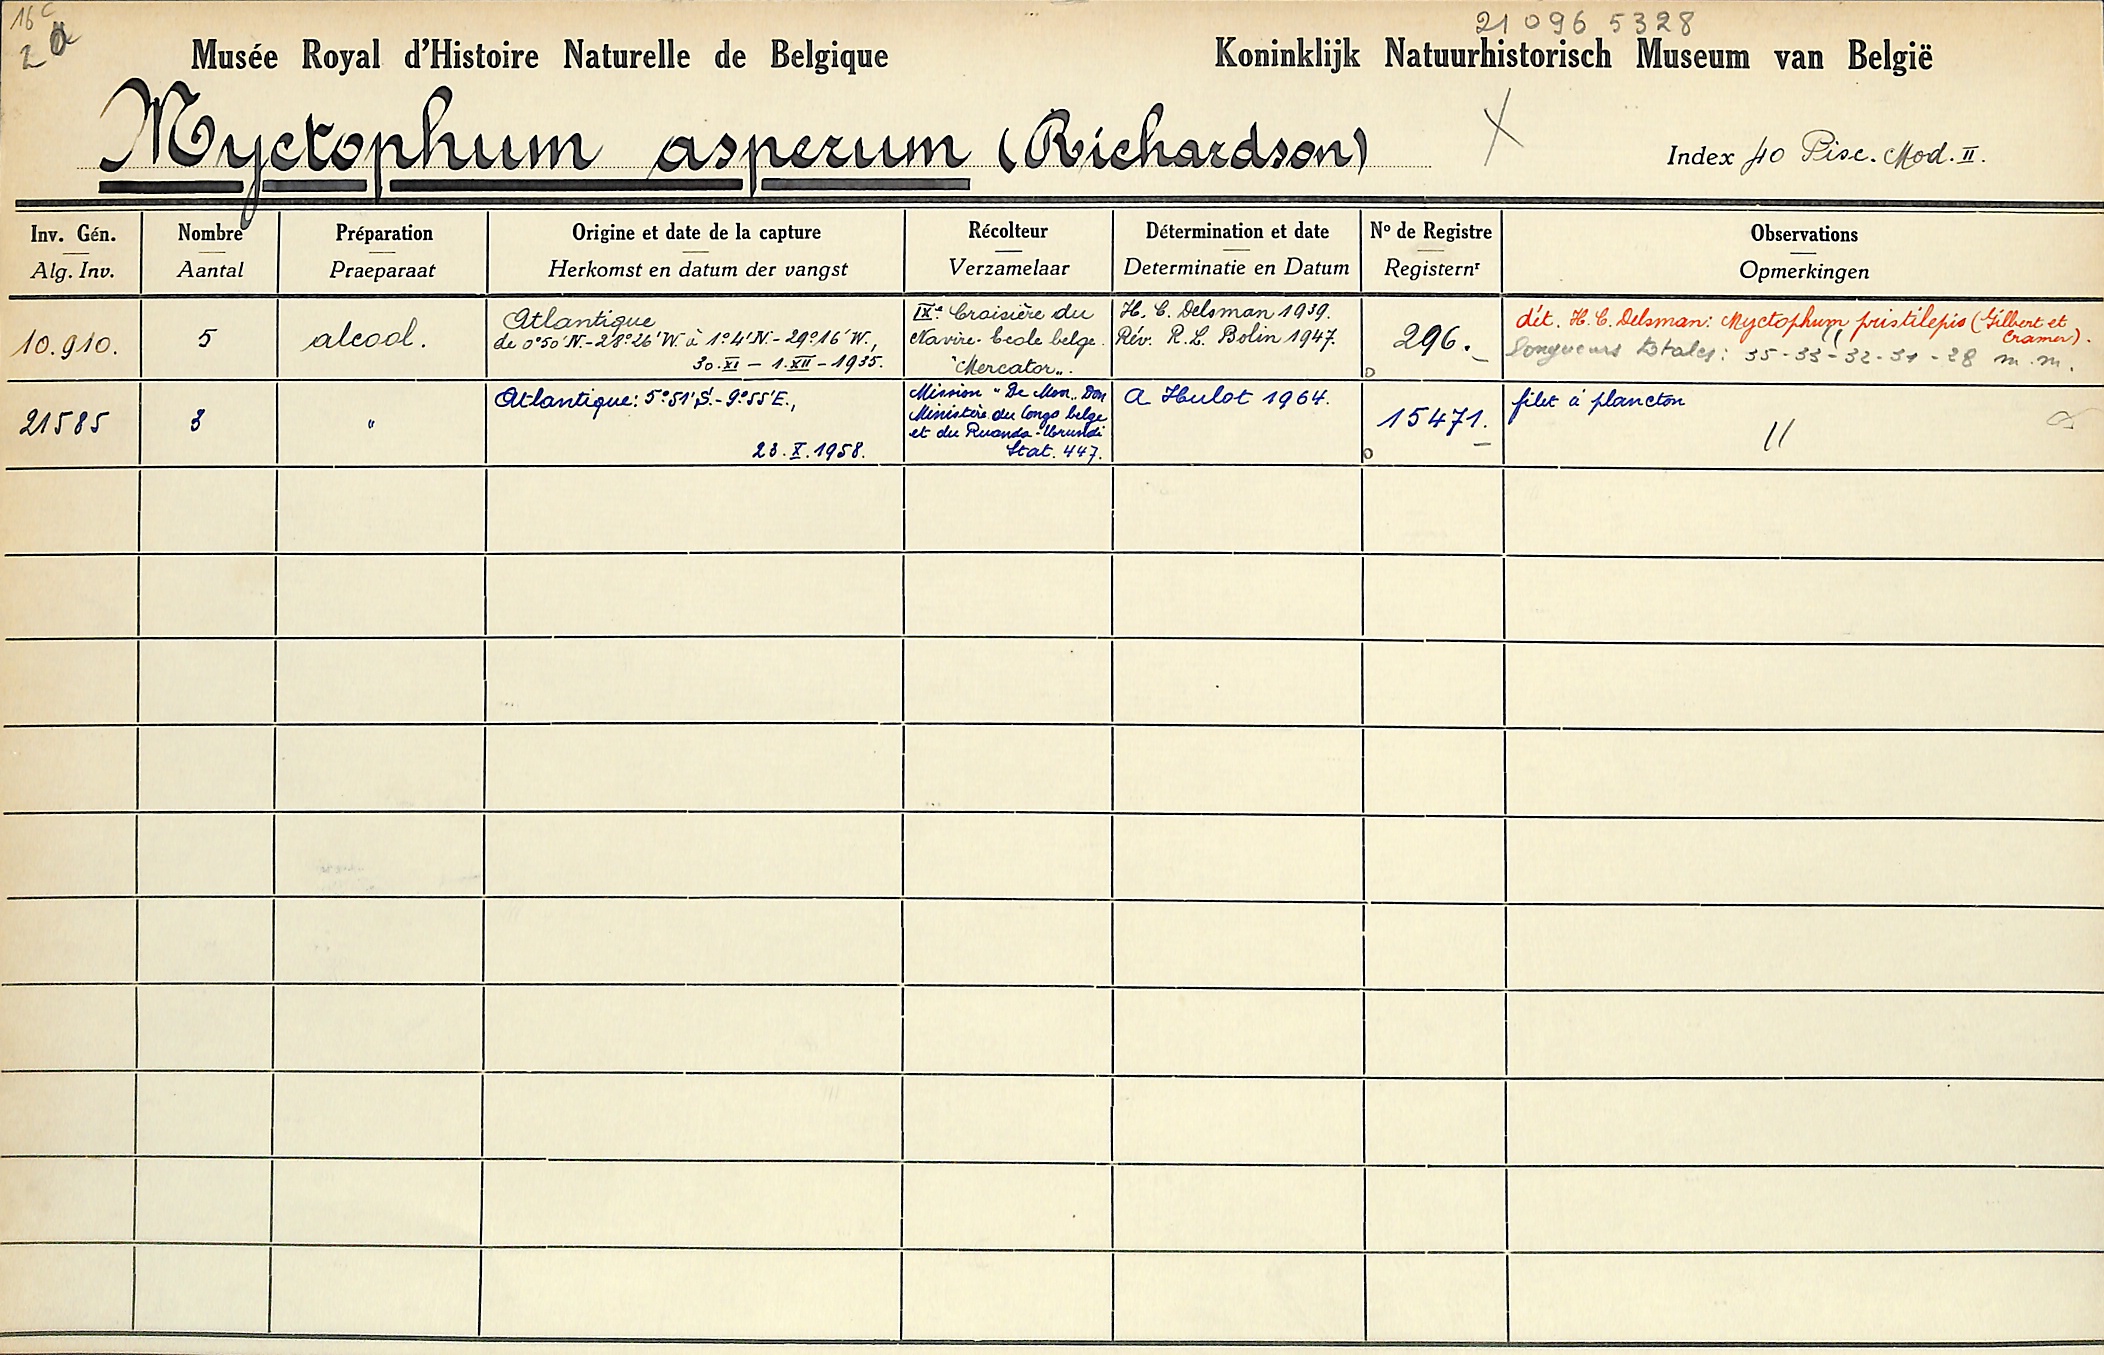 16c
2a
21 096 5328
Musée Royal d'Histoire Naturelle de Belgique
Koninklijk Natuurhistorisch Museum van België
Myctophum asperum (Richardson)
X
Index 40 Pisc. Mod. II.
Inv. Gén.
Alg. Inv.
Nombre
Aantal
Préparation
Praeparaat
Origine et date de la capture
Herkomst en datum der vangst
Récolteur
Verzamelaar
Détermination et date
Determinatie en Datum
No de Registre
Registernr
Observations
Opmerkingen
10.910.
5
alcool.
Atlantique
de 0°50'N.-28°26'W. à 1°4'N.-29°16'W.,
30.XI — 1.XII - 1935.
IXe Croisière du
Navire-Ecole belge
"Mercator".
H. C. Delsman 1939.
Rév. R. L. Bolin 1947.
296.
dét. H. C. Delsman: Myctophum pristilepis (Gilbert et
Cramer).
longueurs totales: 35-33-32-31-28 m.m.
21585
3
"
Atlantique: 5°51'S.-9°55'E.,
23.X.1958.
Mission "De Mon" Don
Ministère du Congo belge
et du Ruanda-Urundi
Stat. 447.
A Hulot 1964.
15471.
filet à plancton